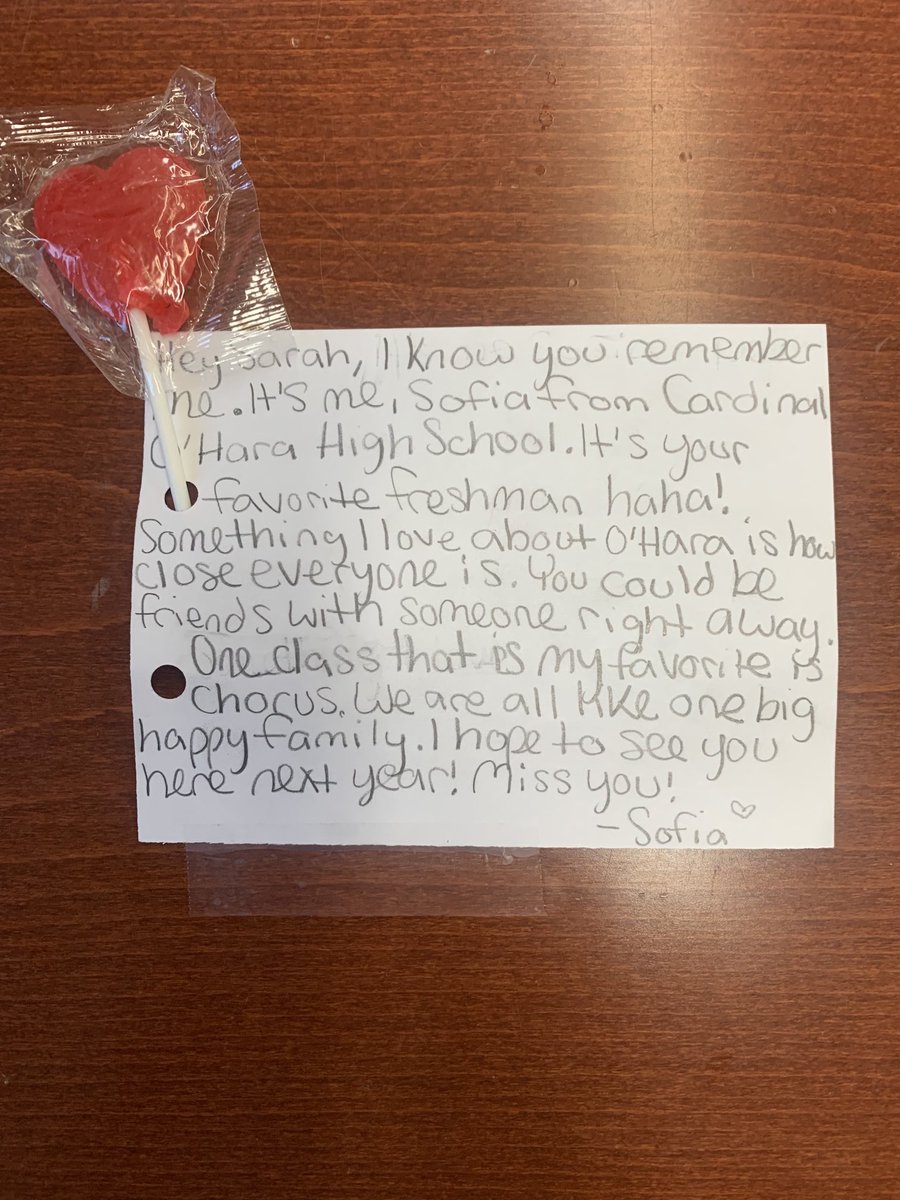 Hey Sarah, I know you remember
me. It's me, Sofia from Cardinal
O'Hara High School. It's your
favorite freshman haha!
Something I love about O'Hara is how
close everyone is. You could be
friends with someone right away.
One class that is my favorite is
Chorus. We are all like one big
happy family. I hope to see you
here next year! Miss you!
- Sofia♡